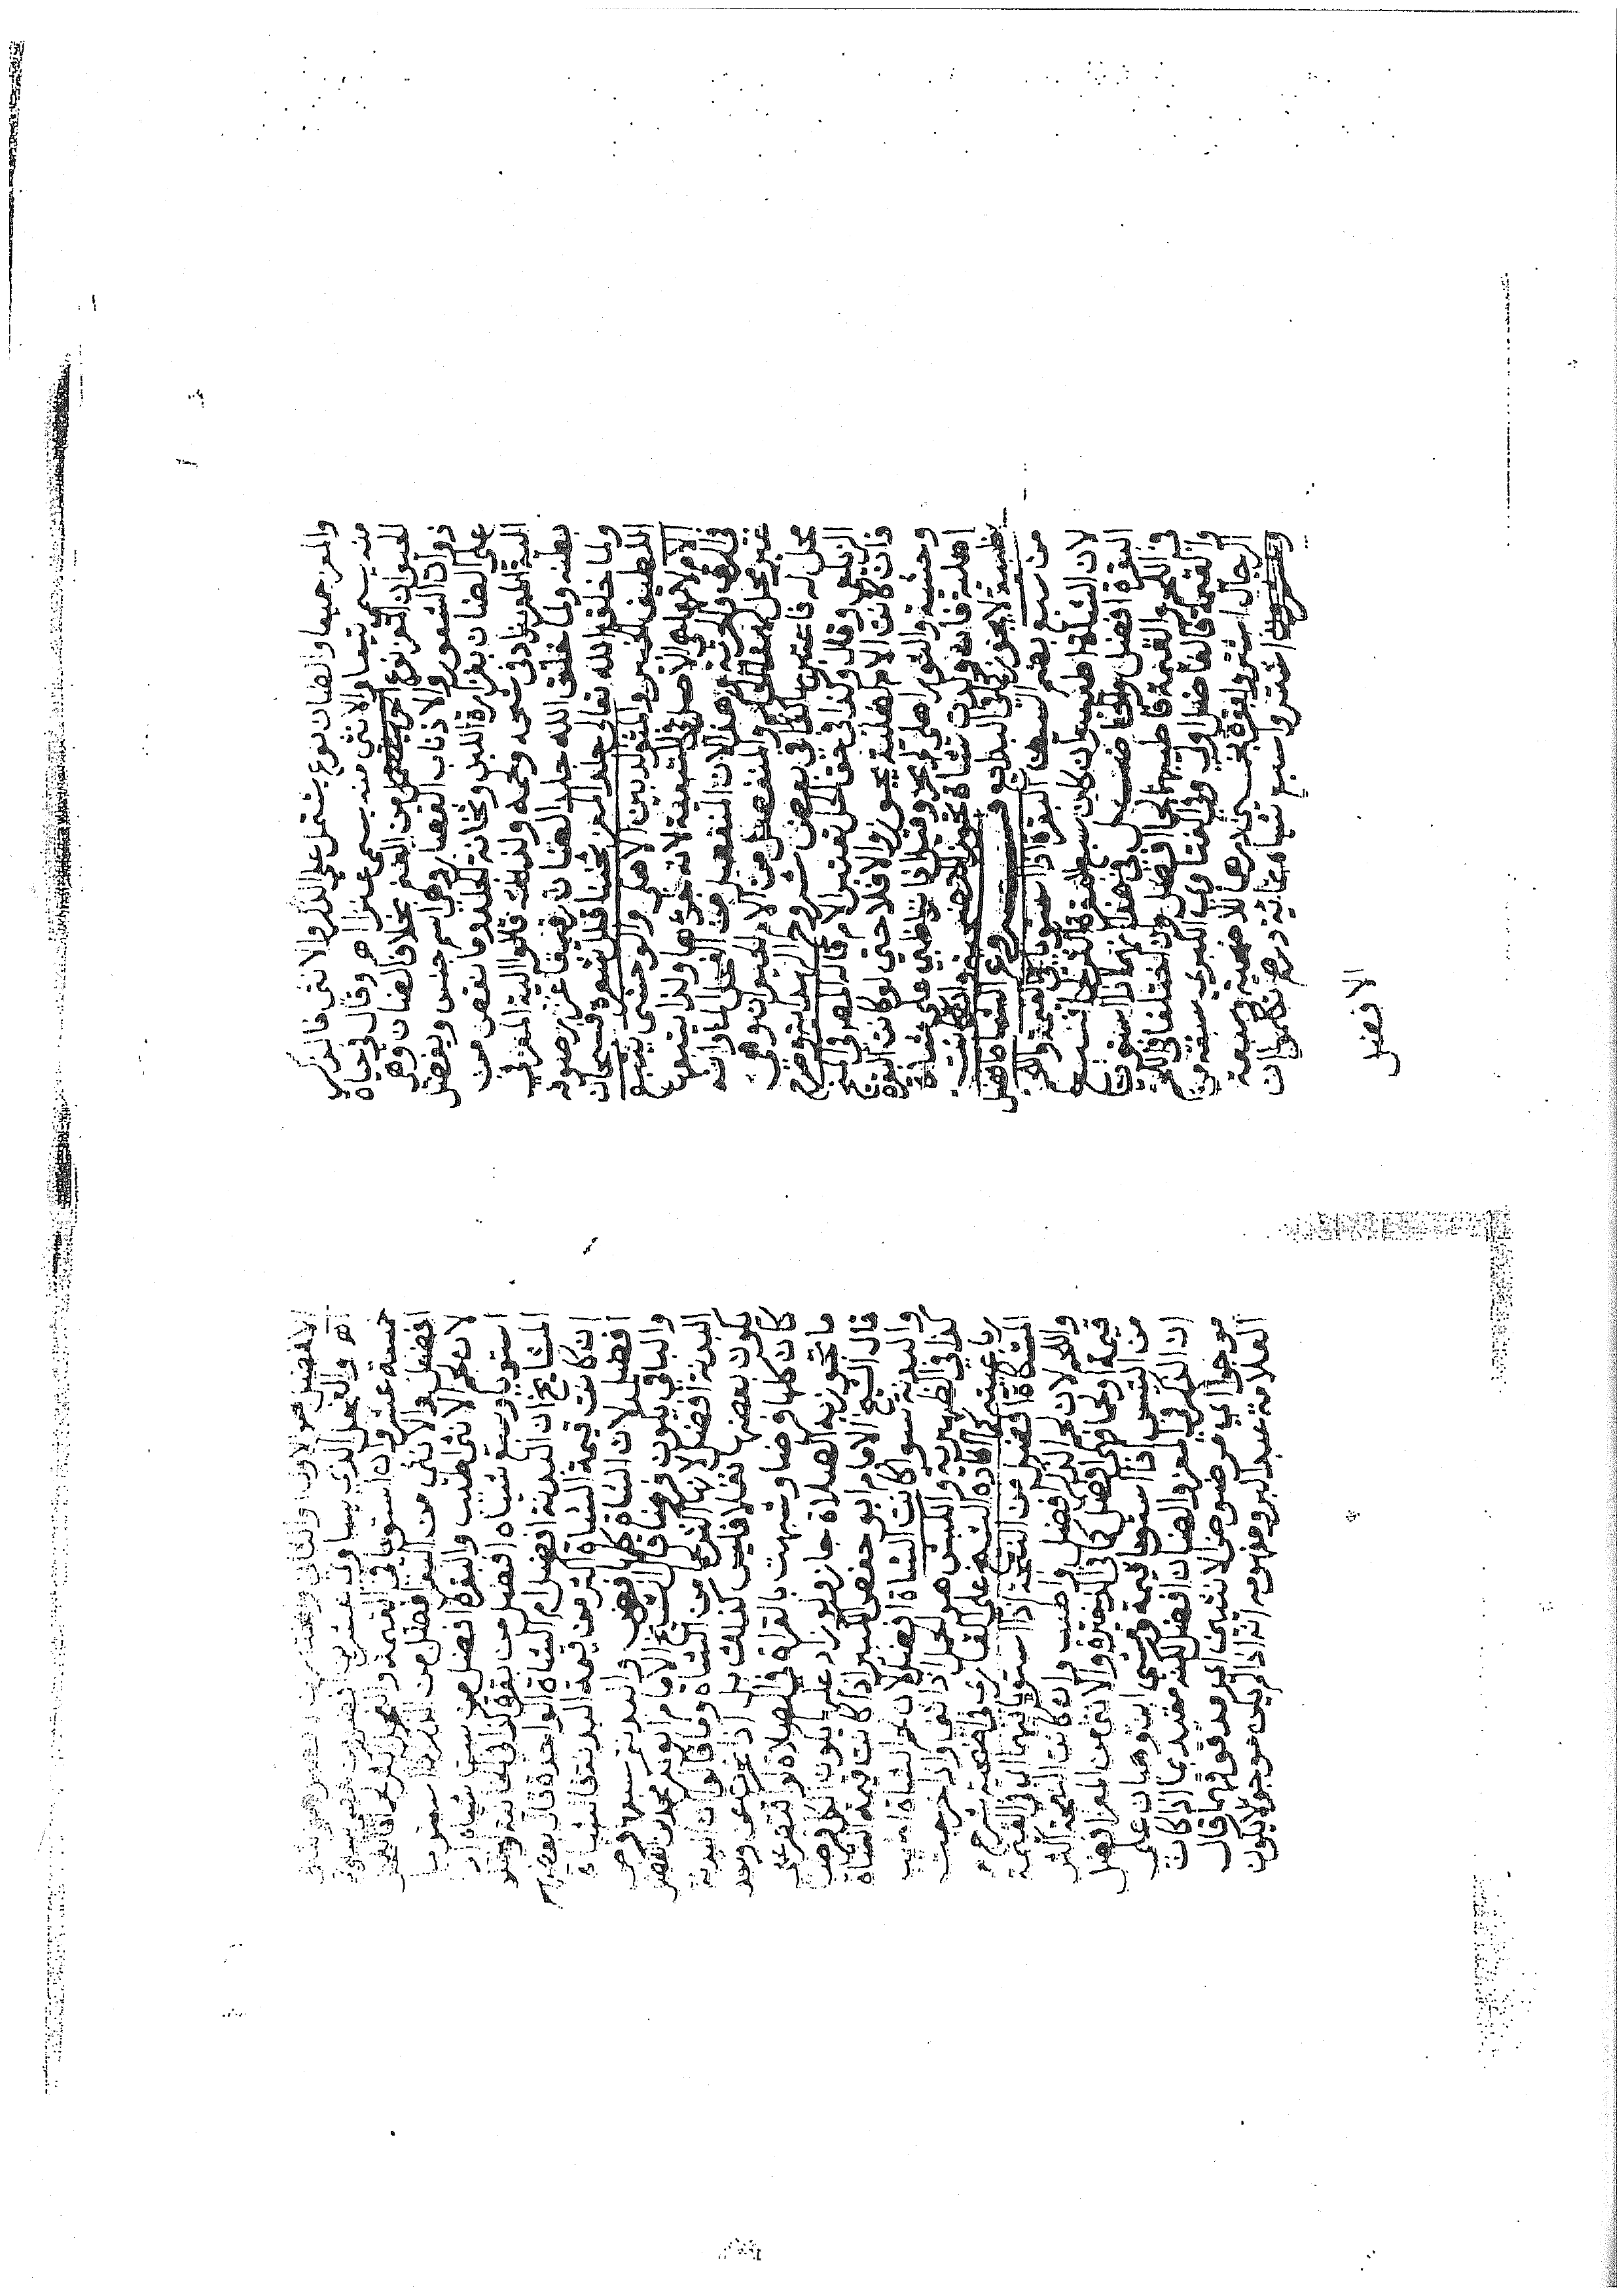 والمعز جميعا والضان نوع يشتمل علي الذكر والانثى فالذكر
منه يسمي تيسا والانثى منه يسمى عنزا اهـ وقال في حياة
الحيوان المعز نوع من الغنم بخلاف الضان وهي
ذوات الشعور والاذناب القصار وهي اسم جنس ويفضل
على الضان بغزارة اللبن وثخانة الجلد وما نقص من
الية المعز زاد في شحمه ولحمه ولذلك قالوا الية المعز في
بطنه ولما خلق الله جلد الضان رقيقا غزر صوفه
ولما خلق الله تعالى جلد المعز ثخينا قلل شعره فسبحان
اللطيف الخبير والمتولد بين الاهلي والوحشي يتبع
الام لانها هي الاصل في التبعية لانه جزؤها ولذا يتبعها
في الرق والحرية وهذا لان المنفصل من الفحل ماء وانه
غير محل والمنفصل من الام حيوان وهو
محل له فاعتبر بها كما في بعض شروح الهداية وصرح
الزيلعي وقال وكذا في حق الحل تعتبر الام قاله المص في المنح
فان كانت الام اهلية يجوز والا فلا حتى لو كانت البقرة
وحشية والثور اهلي لم يجز وقيل اذا نزا ظبي على شاة
اهلية فان ولدت شاة تجوز التضحية وان ولدت
ظبية لا يجوز كما في البدايع فروع الشاة افضل
من سبع بضم السين البقرة اذا استويا في القيمة واللحم
لان الشاة اطيب وان كان سبع البقرة اكثر لحما فسبع
البقرة افضل والحاصل في هذا انهما اذا استويا
في اللحم والقيمة فاطيبهما لحما افضل وان اختلفا في اللحم
والقيمة فالفاضل اولى وفي الفتاوي الكبرى سبعة من
الرجال اشتروا بقرة بخمسين درهما للاضحية وسبعة
اشتروا سبع شياه بماية درهم تكلموا ان
الافضل
الافضل هو الاول او الثاني
اهـ والفحل الذي يساوي عشرين افضل من خصي
خمسة عشر وان استويا في القيمة والفحل اكثر لحما فالفحل
افضل والانثى من البقر افضل من الذكر اذا استويا
لان لحم الانثى اطيب والبقرة افضل من ست شياه اذا
استويا وسبع شياه افضل من بقرة كذا في الخانية وبعض
المشايخ ان البدنة افضل ام الشاة الواحدة قال بعضهم
ان كانت قيمة الشاة اكثر من قيمة البدنة فالشاة
افضل لان الشاة كلها فرض والبدنة سبعها فرض
والباقي يكون فرضا قال الشيخ الامام ابو بكر محمد بن الفضل
البدنة افضل لانها اكثر لحما من الشاة وما قالوا ان البدنة
يكون بعضها نفلا فليس كذلك بل اذا ذبحت عن واحد
كان كلها فرضا وشبهت بالقراة في الصلاة لو اقتصر على
ما تجوز به الصلاة جاز ولو زاد عليها يكون الكل فرضا
قال الشيخ الامام ابو حفص الكبير اذا كانت قيمة الشاة
والبدنة سواء كانت الشاة افضل لان لحم الشاة اطيب
كذا في الظهيرية والكبش هو الحمل اذا اثنى واذا خرجت
رباعيته كما افاده الشيخ علي القاري في اضحية شرح
المشكاة افضل من النعجة اذا استويا فيهما اي في القيمة
واللحم لان لحم الذكر افضل واطيب وان كانت النعجة اكثر
قيمة او لحما فهي افضل كما في الذخيرة والانثى من المعز افضل
من التيس اذا استويا قيمة ومشى ابن وهبان علي
ان الذكر في المعز والضان افضل لكنه مقيد بما اذا كان
موجوا اي مرضوض الانثيين اي مدقوقهما قال
العلامة عبد البر ومفهومه انه اذا لم يكن موجوا لا يكون